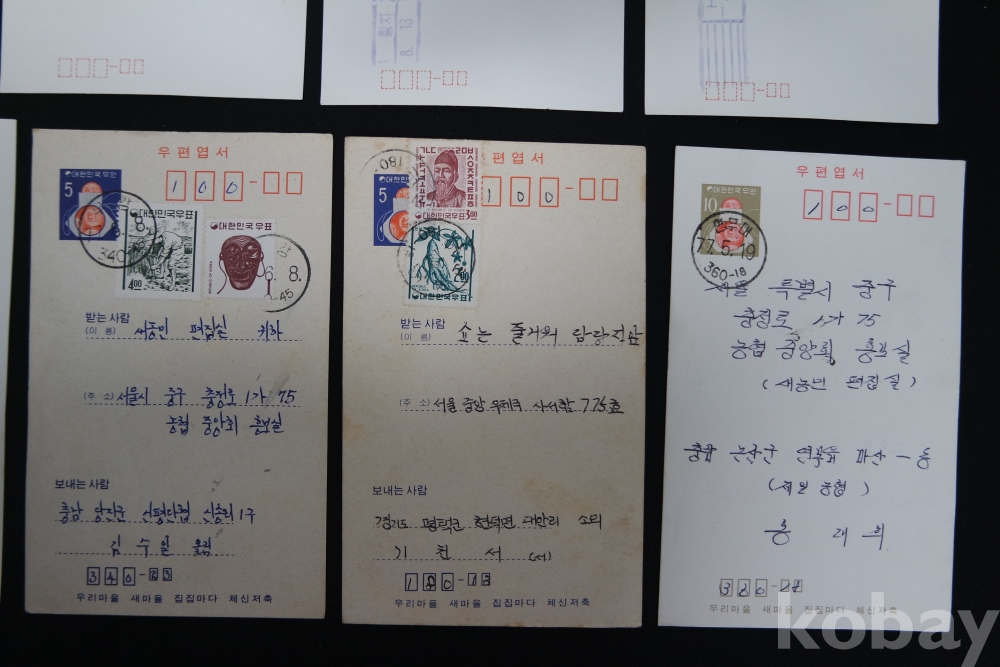 8. 13
우편엽서
5
대한민국우편
100
340
대한민국우표
4.00
대한민국우표
6. 8.
받는사람
(이 름) 새농민 편집실 귀하
(주 소) 서울시 중구 충정로 1가 75
농협 중앙회 홍보실
보내는사람
충남 당진군 신평단협 신송리 1구
김 수 일 올림
340-83
우리마을 새마을 집집마다 체신저축
우편엽서
5
100
3.00
대한민국우표
대한민국우표
받는사람
(이 름) 쇼는 즐거워 담당
(주 소) 서울 중앙 우체국 사서함 775호
보내는사람
경기도 평택군 현덕면 대안리
기 천 서 (서)
우리마을 새마을 집집마다 체신저축
우편엽서
대한민국우편
10
100
77. 5. 19
360-18
서울 특별시 중구
충정로 1가 75
농협 중앙회 홍보실
(새농민 편집실)
충남 논산군
(제일 농협)
우리마을 새마을 집집마다 체신저축
kobay